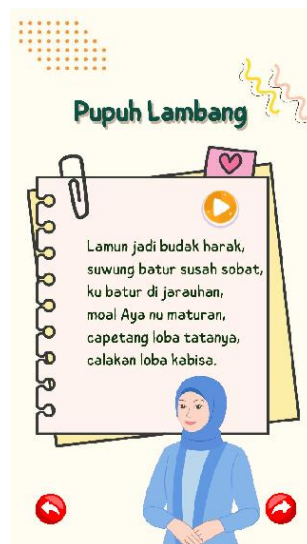 Pupuh Lambang
Lamun jadi budak harak,
suwung batur susah sobat,
ku batur di jarauhan,
moal Aya nu maturan,
capetang loba tatanya,
calakan loba kabisa.